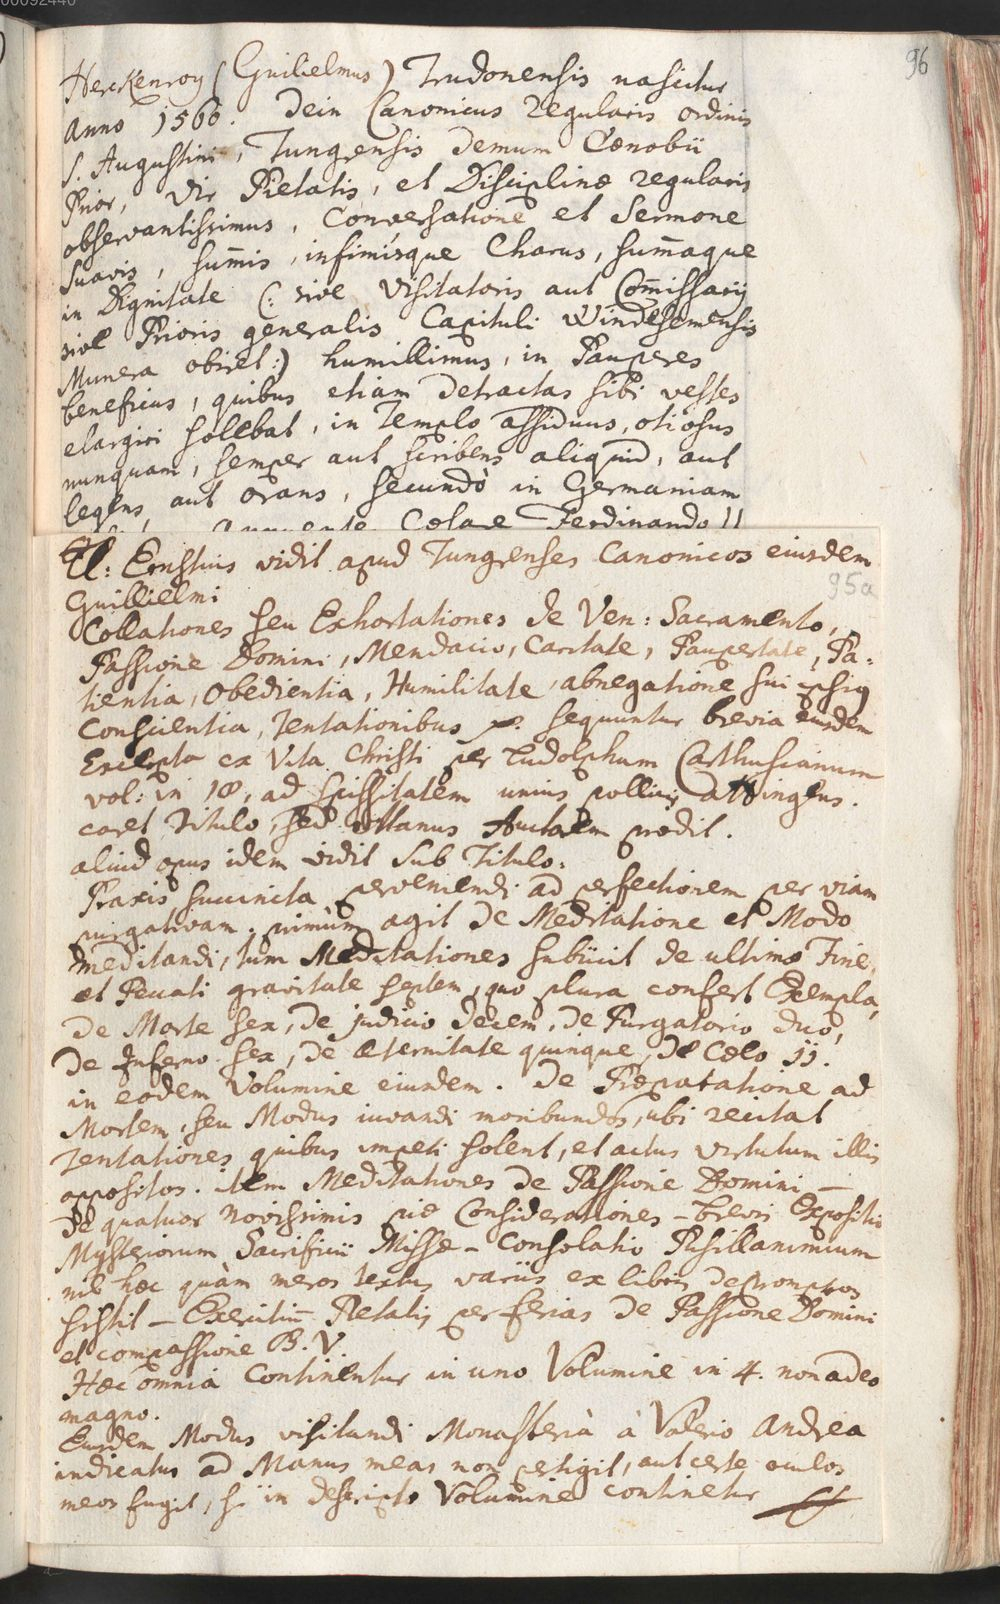 96
Herckenroy (Guilielmus) Trudonensis nascitur
Anno 1566. dein Canonicus Regularis ordinis
S. Augustini, Tungrensis demum Cœnobii
Prior, vir Pietatis, et Disciplinæ regularis
observantissimus, Conversatione et Sermone
suavis, sum̄is, infimisque Charus, sum̄aque
in Dignitate (: sive Visitatoris aut Com̄issarij
sive Prioris generalis Capituli Windesemensis
Munera obiret:) humillimus, in Pauperes
beneficus, quibus etiam detractas sibi vestes
elargiri solebat, in Templo assiduus, otiosus
nunquam, semper aut scribens aliquid, aut
legens, aut orans, secundò in Germaniam
Cæsare Ferdinando II
Cl: Ernstius vidit apud Tungrenses Canonicos eiusdem
95a
Guillielmi
Collationes seu Exhortationes de Ven: Sacramento,
Passione Domini, Mendacio, Caritate, Paupertate, Pa-
tientia, Obedientia, Humilitate, abnegatione sui ipsius
Conscientia, Tentationibus &c. sequuntur brevia eiusdem
Excerpta ex Vita Christi per Ludolphum Carthusianum
vol: in 18, ad spissitatem unius pollicis attingens.
caret titulo, sed Manus Auctorem prodit.
aliud opus idem vidit sub Titulo:
Praxis succincta perveniendi ad perfectionem per viam
purgativam. primùm agit de Meditatione et Modo
meditandi, tum Meditationes subiicit de ultimo Fine,
et Peccati gravitate septem, quo plura confert Exempla,
de Morte sex, de judicio decem, de Purgatorio duo,
de Inferno sex, de æternitate quinque, de Cœlo ii.
in eodem Volumine eiusdem. De Præparatione ad
Mortem, seu Modus iuvandi moribundos, ubi recitat
Tentationes quibus impeti solent, et actus virtutum illis
oppositos. item Meditationes de Passione Domini —
De quatuor Novissimis piæ Considerationes - brevis Expositio
Mysteriorum Sacrificii Missæ - Consolatio Pusillanimium
nil hæc quàm meros textus variis ex libris depromptos
sistit — Exercitiū Pietatis per ferias de Passione Domini
et compassione B. V.
Hæc omnia Continentur in uno Volumine in 4. non adeo
magno.
Eiusdem Modus visitandi Monasteria à Valerio Andrea
indicatus ad Manus meas non pertigit, aut certe oculos
meos fugit, si in descripto Volumine continetur